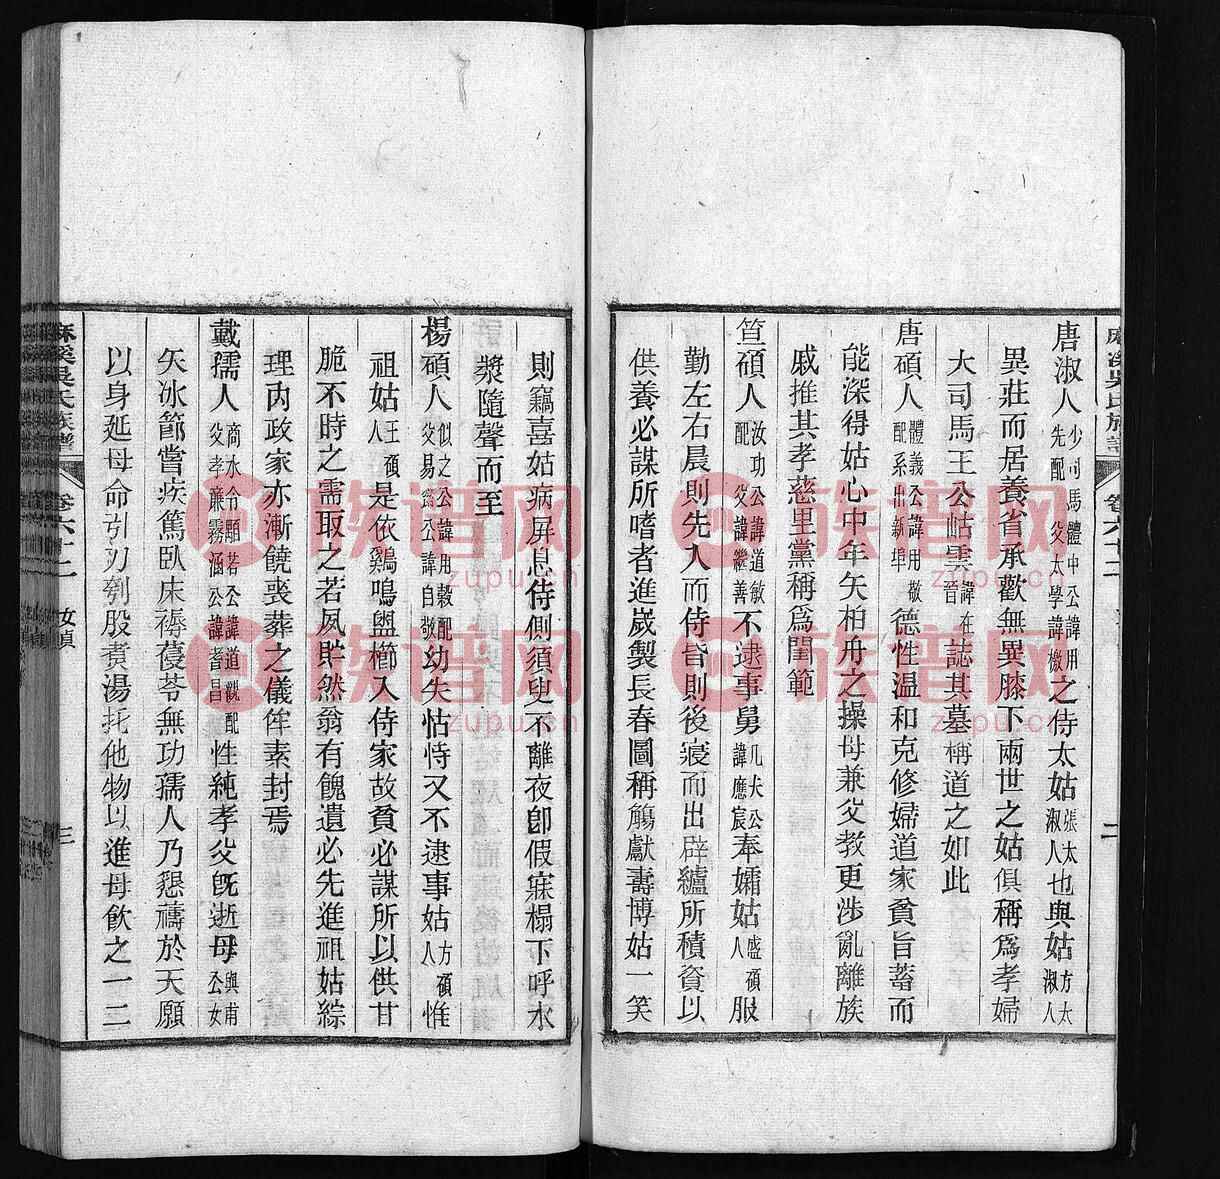 唐淑人少司馬體中公諱用先配父太學諱檄之侍太姑張太淑人也與姑方太淑人
異莊而居養省承歡無異膝下兩世之姑俱稱爲孝婦
大司馬王公岵雲諱在晉誌其墓稱道之如此
唐碩人體義公諱用敬配系出新埠德性溫和克修婦道家貧旨蓄而
能深得姑心中年矢柏舟之操母兼父教更涉亂離族
戚推其孝慈里黨稱爲閨範
笪碩人汝功公諱道敏配父諱繼善不逮事舅几犬公諱應宸奉孀姑盛碩人服
勤左右晨則先人而侍昏則後寢而出辟纑所積資以
供養必謀所嗜者進嵗製長春圖稱觴獻壽博姑一笑
則竊喜姑病屏息侍側須臾不離夜卽假寐榻下呼水
漿隨聲而至
楊碩人似之公諱用穀配父易齋公諱自敬幼失怙恃又不逮事姑方碩人惟
祖姑王碩人是依雞鳴盥櫛入侍家故貧必謀所以供甘
脆不時之需取之若夙貯然翁有餽遺必先進祖姑綜
理內政家亦漸饒喪葬之儀侔素封焉
戴孺人商水令顒若公諱道觀配父孝亷霧涵公諱耆昌性純孝父旣逝母與甫公女
矢冰節嘗疾篤臥床褥葠苓無功孺人乃懇禱於天願
以身延母命引刀刲股煮湯托他物以進母飲之一二
麻溪吳氏族譜 卷六十二 女貞 三